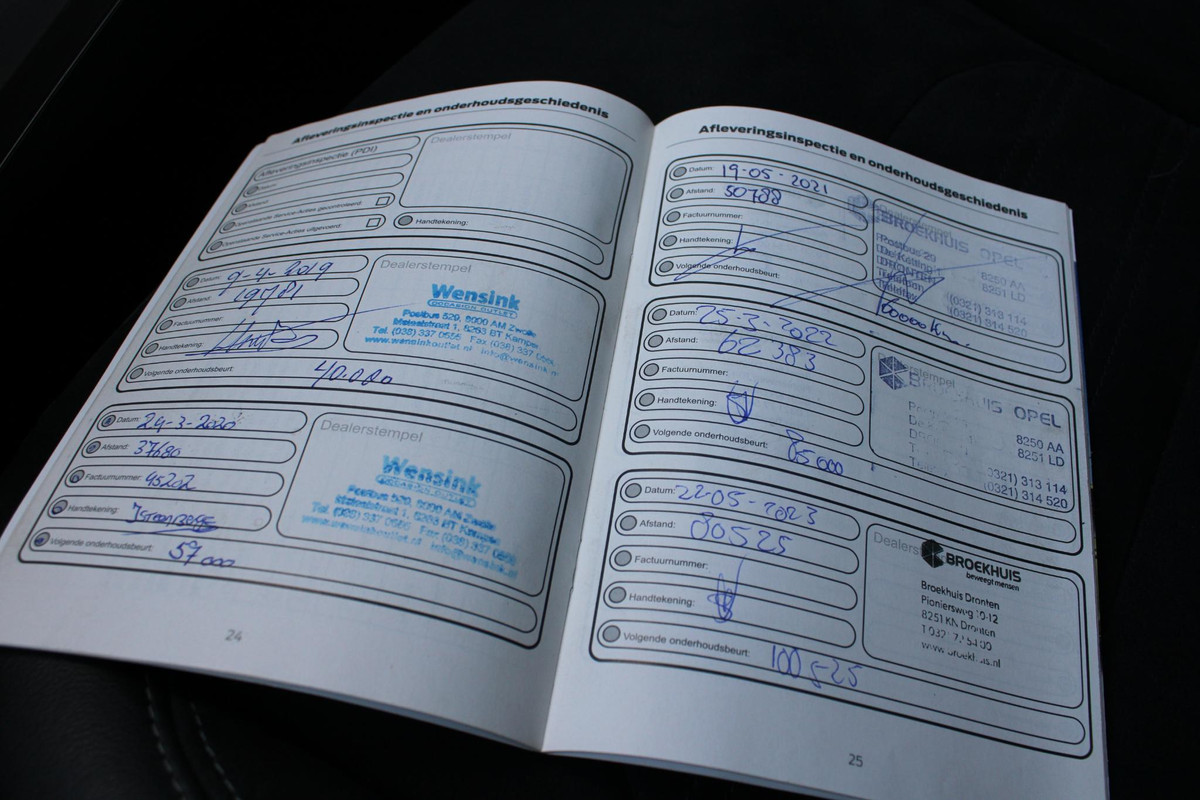 Afleveringsinspectie en onderhoudsgeschiedenis
Afleveringsinspectie (PDI)
Dealerstempel
Datum:
Afstand:
Openstaande Service-Acties gecontroleerd
Openstaande Service-Acties uitgevoerd
Handtekening:
Datum: 9-4-2019
Afstand: 19781
Factuurnummer:
Handtekening:
Volgende onderhoudsbeurt: 40.000
Dealerstempel
Wensink
OCCASION OUTLET
Postbus 529, 8000 AM Zwolle
1, 8263 BT Kampen
Tel. (038) 337 0666 Fax (038) 337
www.wensinkoutlet.nl info@wensink.nl
Datum: 24-3-2020
Afstand: 37680
Factuurnummer: 45202
Handtekening:
Volgende onderhoudsbeurt: 57000
Dealerstempel
Wensink
OCCASION OUTLET
Postbus 529, 8000 AM Zwolle
1, 8263 BT Kampen
Tel. (038) 337 0666 Fax (038) 337
www.wensinkoutlet.nl info@wensink.nl
24
Afleveringsinspectie en onderhoudsgeschiedenis
Datum: 19-05-2021
Afstand: 50788
Factuurnummer:
Handtekening:
Volgende onderhoudsbeurt:
BROEKHUIS OPEL
Postbus 20
8250 AA
DRONTEN 8251 LD
Telefoon (0321) 313 114
Telefax (0321) 314 520
Datum: 25-3-2022
Afstand: 62383
Factuurnummer:
Handtekening:
Volgende onderhoudsbeurt: 85000
BROEKHUIS OPEL
8250 AA
8251 LD
(0321) 313 114
(0321) 314 520
Datum: 22-05-2023
Afstand: 80525
Factuurnummer:
Handtekening:
Volgende onderhoudsbeurt: 100525
BROEKHUIS
beweegt mensen
Broekhuis Dronten
Pioniersweg 10-12
8251 KN Dronten
www.broekhuis.nl
25